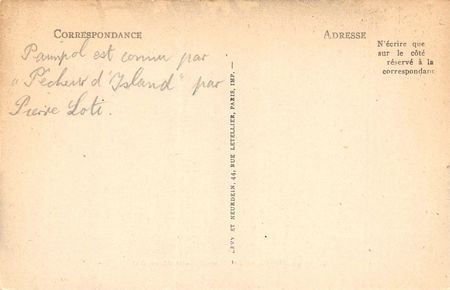 CORRESPONDANCE
Paimpol est connu par
"Pêcheur d'Island" par
Pierre Loti.
LEVY ET NEURDEIN, 44, RUE LETELLIER, PARIS, IMP.
ADRESSE
N'écrire que
sur le côté
réservé à la
correspondanc